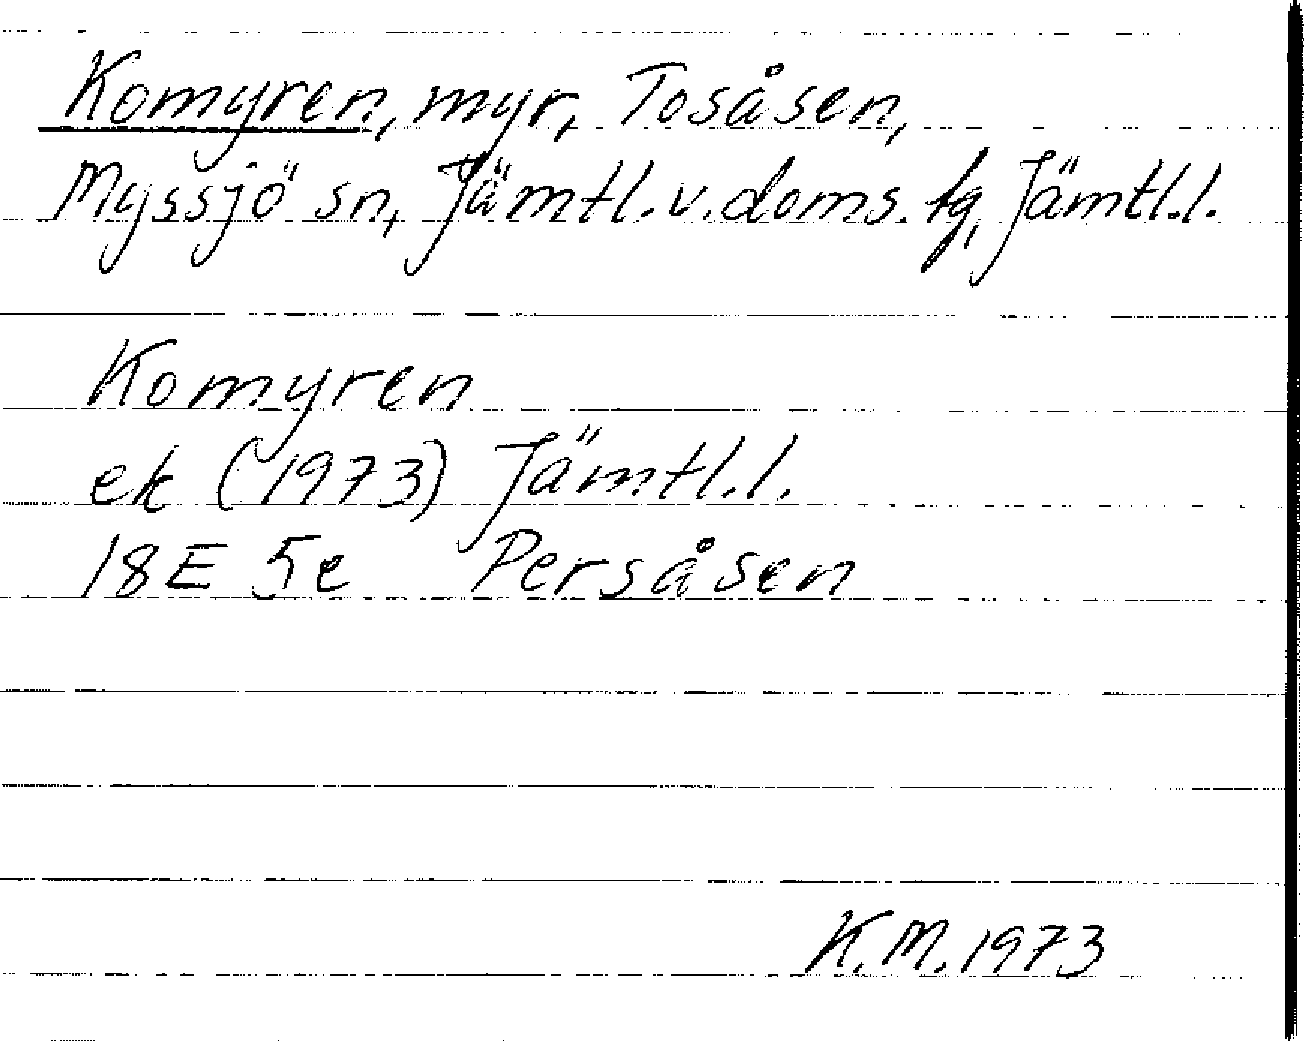 Komyren, myr, Tosåsen,
Myssjö sn, Jämtl. v. doms. tg, Jämtl. l.
Komyren
ek (1973) Jämtl. l.
18E 5e Persåsen
K. M. 1973